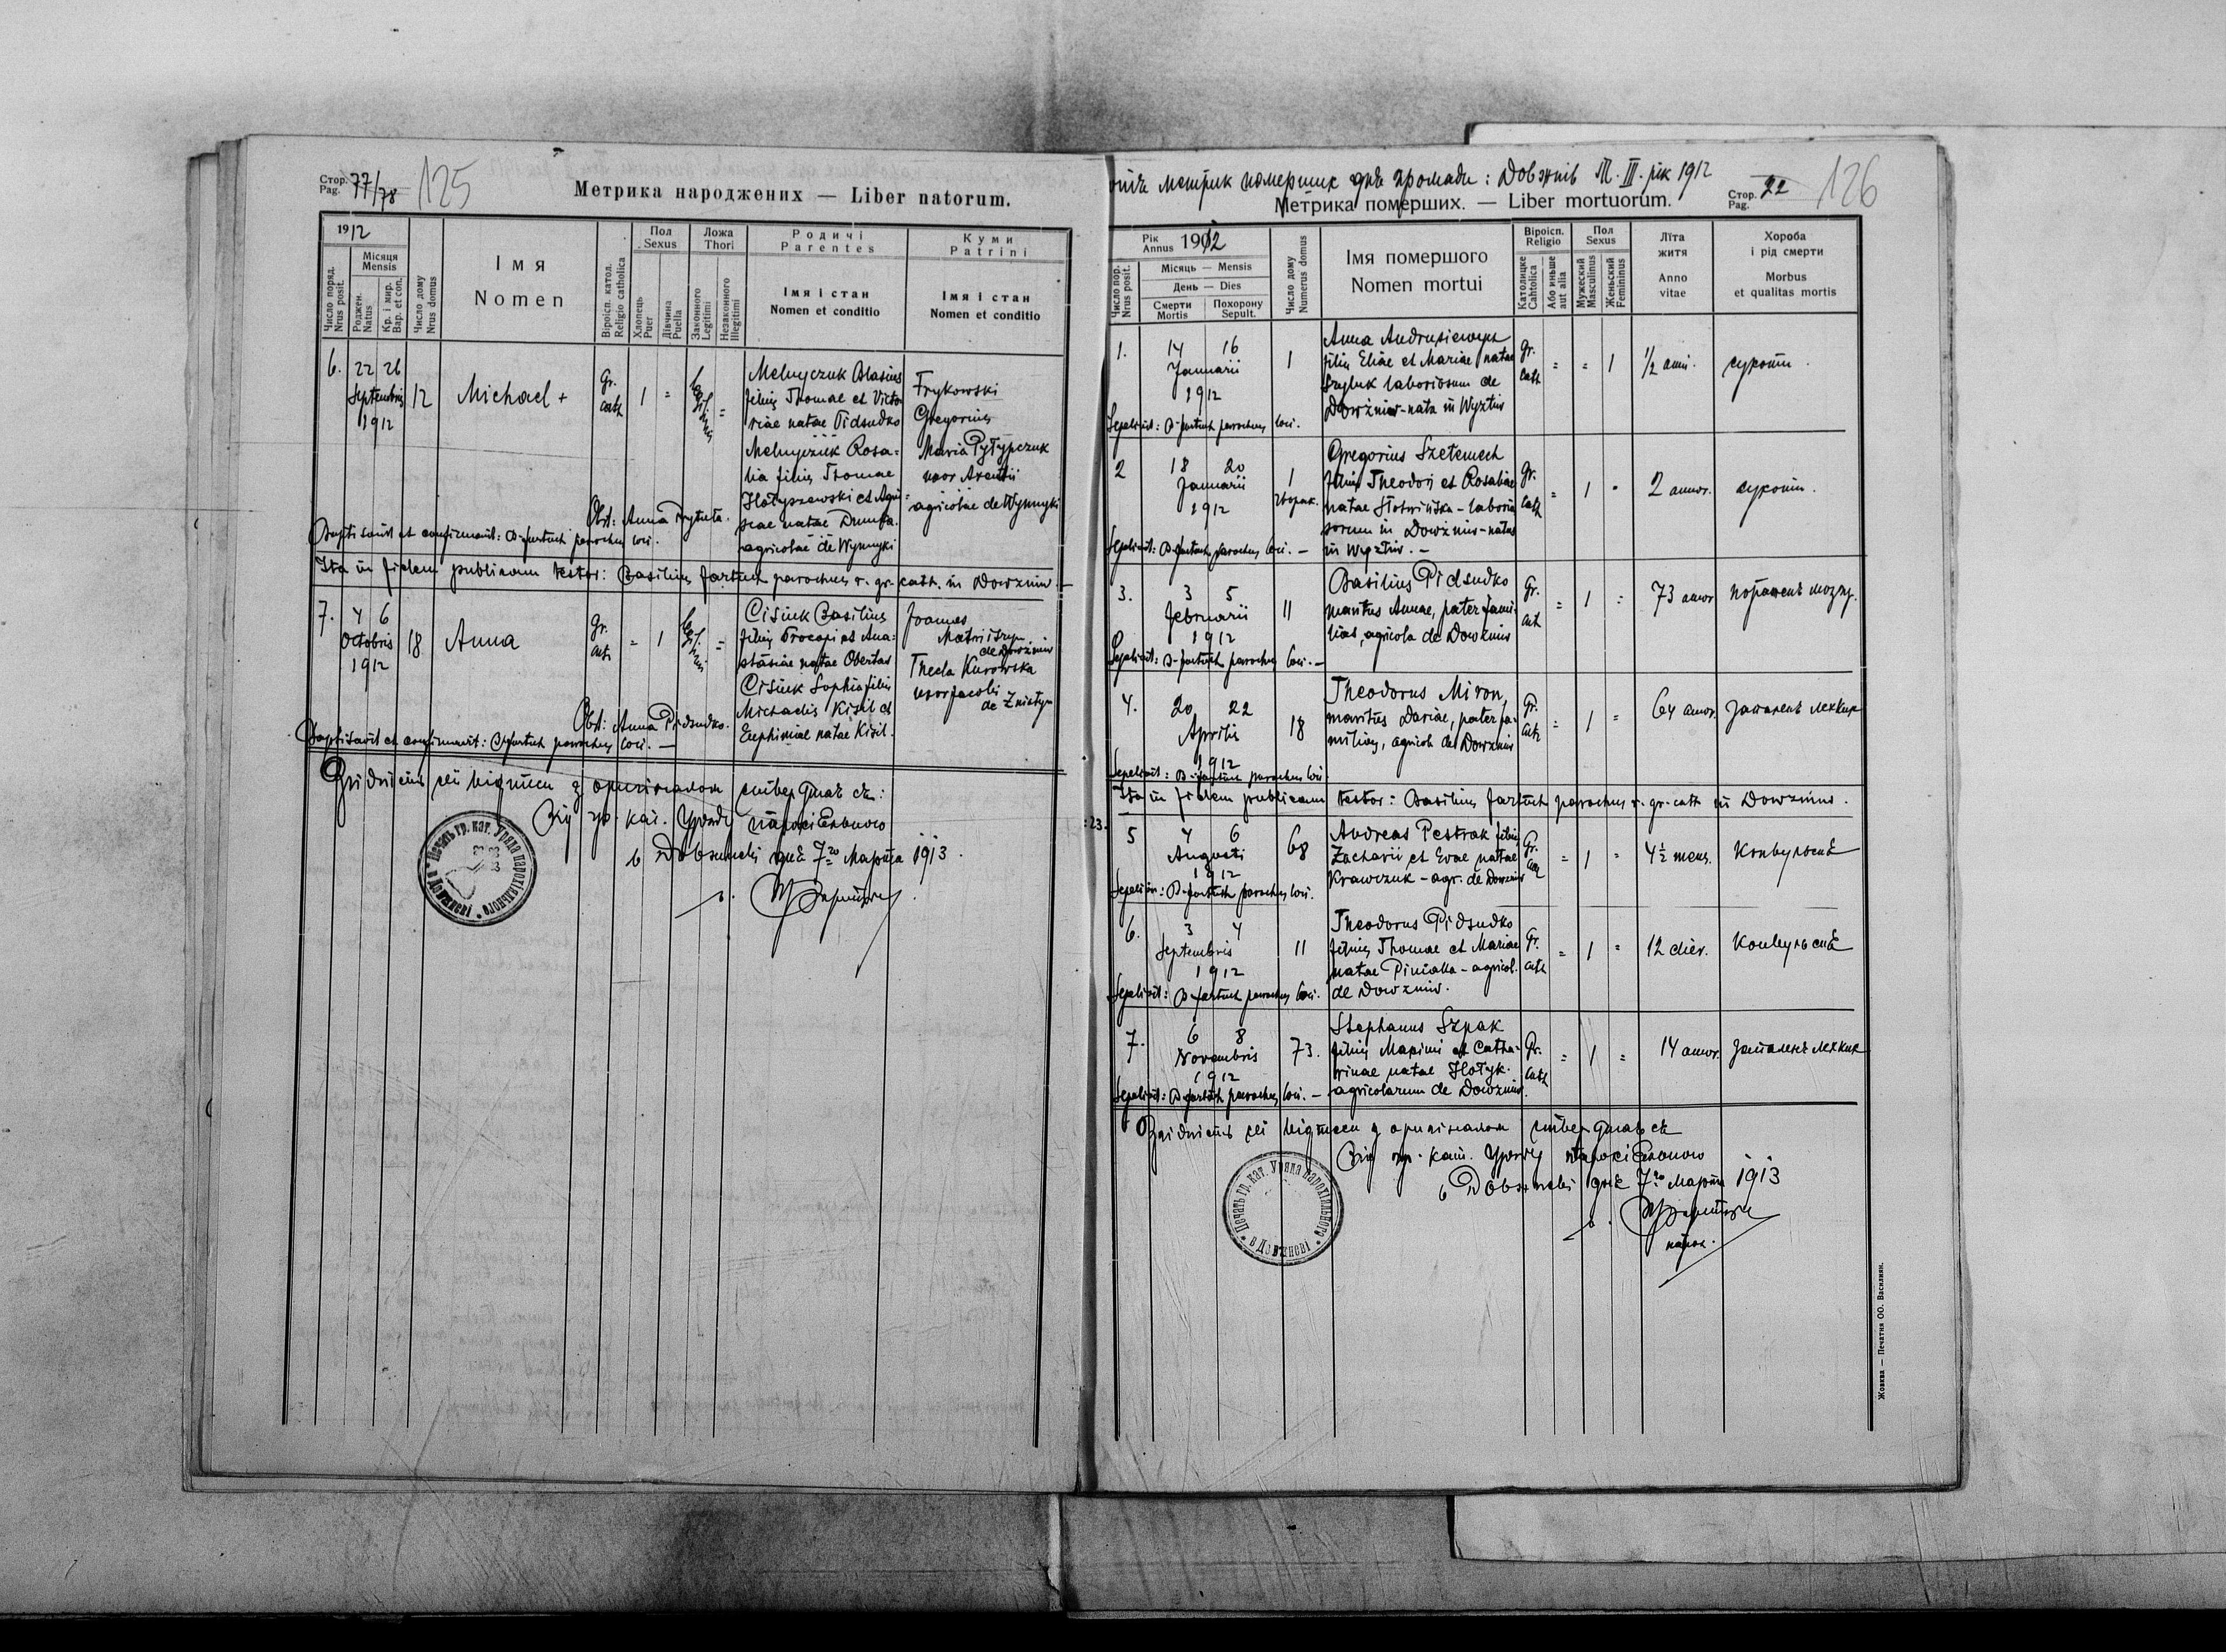 Стор.
Pag.
77/78
125
Метрика народжених — Liber natorum.
1912
Число поряд.
Nrus posit.
Місяця
Mensis
Роджен.
Natus
Кр. і мир.
Bap. et con.
Число дому
Nrus domus
Імя
Nomen
Віроісп. катол.
Religio catholica
Пол
Sexus
Хлопець
Puer
Дівчина
Puella
Ложа
Thori
Законного
Legitimi
Незаконного
Illegitimi
Родичі
Parentes
Імя і стан
Nomen et conditio
Куми
Patrini
Імя і стан
Nomen et conditio
6.
22 26
Septembris
1912
12
Michael +
Gr.
cath
1
=
=
Melnyczuk Blasius
filius Thomae et Victo-
riae natae Pidsudko
Melnyczuk Rosa=
lia filia Thomae
Hołyszewski et Agri=
agricolae de Wynnyki
Frykowski
Gregorius
Maria Pyłypczuk
uxor Arentii
agricolae de Wynnyki
Obst: Anna
Baptisavit et confirmavit: B. fartuch parochus loci.
Ita in fidem publicam testor: Basilius fartuch parochus r. gr. cath. in Dowzniw. —
7.
4 6
Octobris
1912
18
Anna
gr.
cath
=
1
=
Cisiuk Basilius
filius Procopi et Ana=
stasiae natae Obertas
Cisiuk Sophia filia
Michaelis Kisil et
Euphimiae natae Kisil.
Joannes
de Dowzniw
Thecla Kurowska
uxor Jacobi
de Zniatyn
Obst: Anna Pidsudko.
Baptisavit et confirmavit: B fartuch parochus loci. —
Згідність сеї відписи з оригіналом стверджає ся:
Від гр. кат. Уряду парохіяльного
в Довжневі дня 7го Марта 1913.
Печать гр. кат. Уряда парохіяльного в Довжневі
метрик померших для громади: Довжнів Т. III. рік 1912
Метрика померших. — Liber mortuorum.
Стор.
Pag.
22
126
Рік
Annus
1912
Число пор.
Nrus posit.
Місяць — Mensis
День — Dies
Смерти
Mortis
Похорону
Sepult.
Число дому
Numerus domus
Імя помершого
Nomen mortui
Віроісп.
Religio
Католицке
Cahtolica
Або иньше
aut alia
Пол
Sexus
Мужеский
Masculinus
Женьский
Femininus
Літа
житя
Anno
vitae
Хороба
і рід смерти
Morbus
et qualitas mortis
1.
14 16
Januarii
1912
1
Anna
filia Eliae et Mariae natae
laboriosum de
Dowzniw - nata in Wyżłiw
gr.
cath
=
=
1
1/2 anni.
сухоти.
Sepelivit: B. fartuch parochus loci.
2
18 20
Januarii
1912
1
Gregorius Szetemech
filius Theodori et Rosaliae
natae
in Dowzniw - natus
in Wyżłiw. —
gr.
cath
=
1
=
2 annor.
сухоти.
Sepelivit: B. fartuch parochus loci. —
3.
3 5
Februarii
1912
11
Basilius Pidsudko
maritus Annae, pater fami-
lias, agricola de Dowzniw
Gr.
cath
=
1
=
73 annor
поражень мозку.
Sepelivit: B. fartuch parochus loci. —
4.
20 22
Aprilis
1912
18
Theodorus Miron,
maritus Dariae, pater fa-
milias, agricola de Dowzniw
Gr.
cath
=
1
=
64 annor.
запалень легких
Sepelivit: B. fartuch parochus loci
Ita in fidem publicam testor: Basilius fartuch parochus r. gr. cath in Dowzniw.
5
4 6
Augusti
1912
68
Andreas Pestrak filius
Zacharii et Evae natae
Krawczuk - agr. de Dowzniw
Gr.
cath
=
1
=
4 1/2 mens.
Конвульсиї
Sepelivit: B. fartuch parochus loci.
6.
3 4
Septembris
1912
11
Theodorus Pidsudko
filius Thomae et Mariae
natae - agricol.
de Dowzniw.
Gr.
cath
=
1
=
12 dier.
Конвульсиї
Sepelivit: B. fartuch parochus loci.
7.
6 8
Novembris
1912
73.
Stephanus Szpak
filius Maximi et Catha-
rinae natae Hołyk.
agricolarum de Dowzniw.
Gr.
cath
=
1
=
14 annor.
запалень легких
Sepelivit: B. fartuch parochus loci. —
Згідність сеї відписи з оригіналом стверджає ся
Від гр. кат. Уряду парохіяльного
в Довжневі дня 7го Марта 1913
парох.
Печать гр. кат. Уряда парохіяльного в Довжневі
Жовква — Печатня ОО. Василиян.